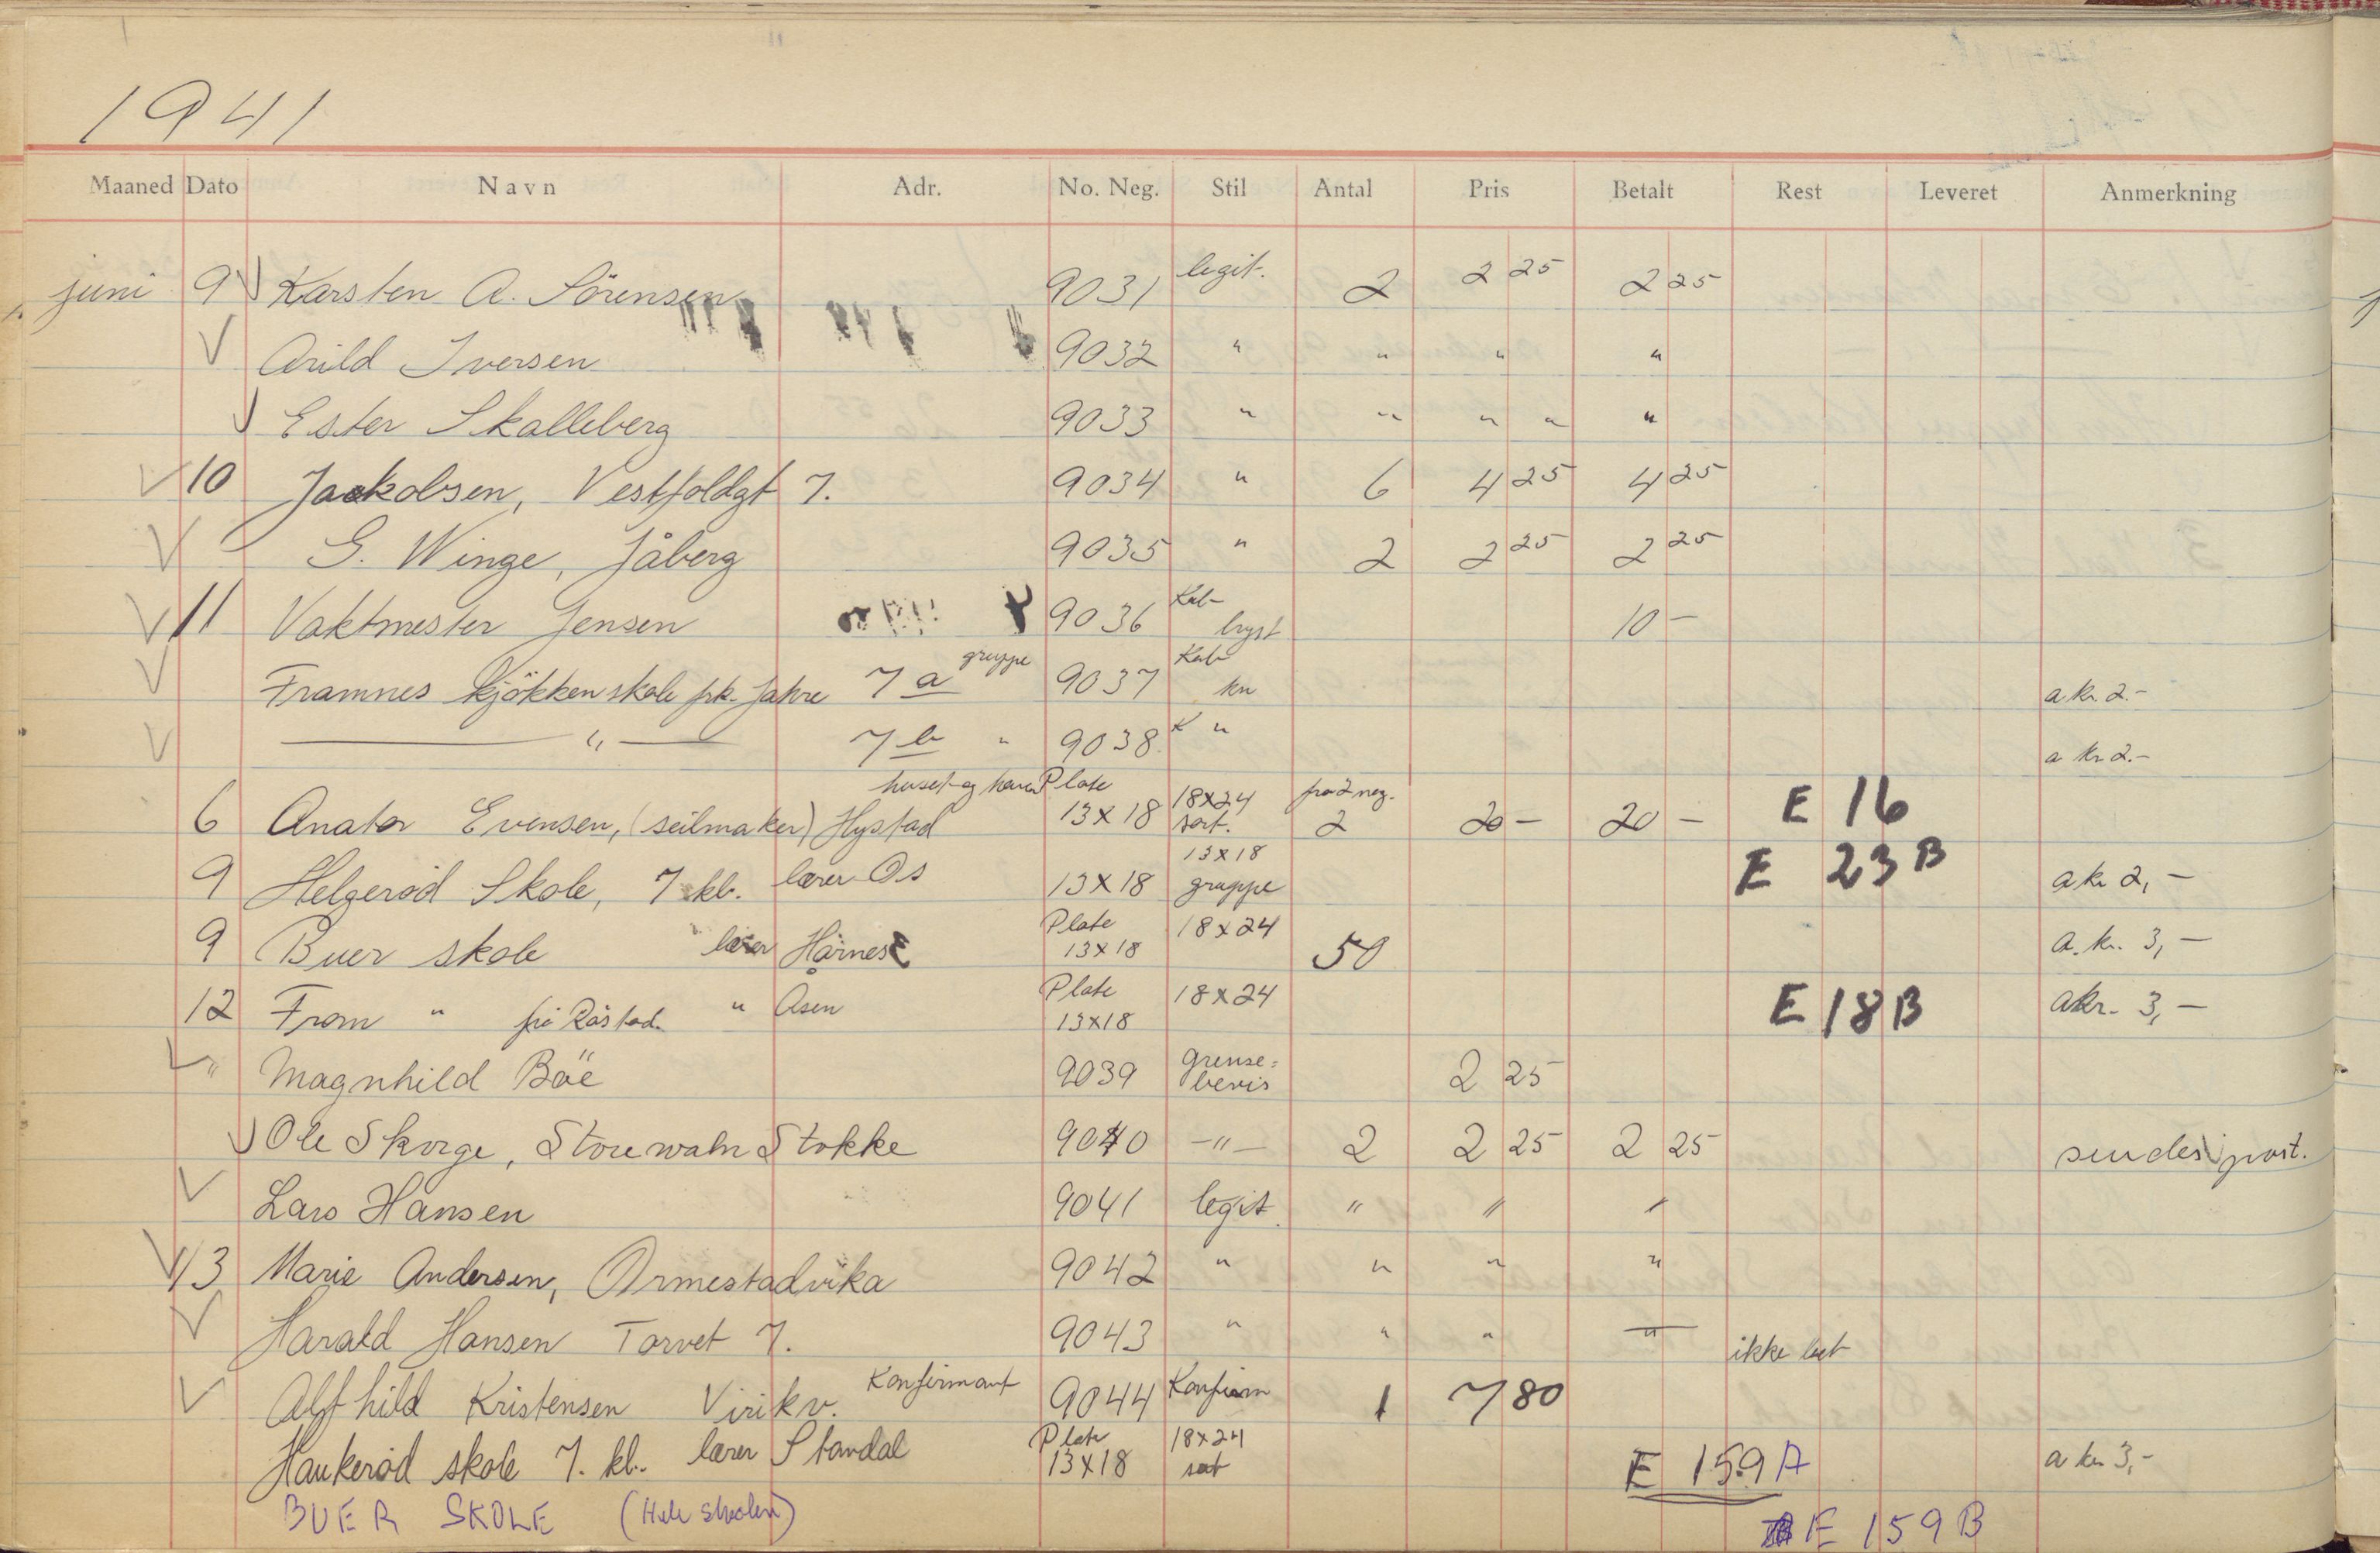 1941
Maaned Dato Navn Adr. No. Neg. Stil Antal Pris Betalt Rest Leveret Anmerkning
juni 9 Karsten A. Sörensen 9031 legit. 2 2 25 2 25
Arild Iversen 9032 " " " "
Ester Skalleberg 9033 " " " " "
10 Jackobsen, Vestfoldgt 7. 9034 " 6 4 25 4 25
G. Winge, Jåberg 9035 " 2 2 25 2 25
11 Vaktmester Jensen 9036 Kab bryst 10 -
Framnes kjökkenskole frk. Jahre 7 a gruppe 9037 Kab kn a kr. 2.-
" 7 b " 9038. K " a kr 2.-
6 Anator Evensen, (seilmaker) Hystad huset og haven Plate 13x18 18x24 sort. fra 2 neg. 2 20 - 20 - E 16
9 Helgeröd Skole, 7 kl. lærer Os 13x18 13x18 gruppe E 23B a kr 2,-
9 Buer skole lærer Hårnes Plate 13x18 18x24 50 a. kr. 3,-
12 Fram " på Råstad. " Åsen Plate 13x18 18x24 E 18B a kr. 3,-
" Magnhild Böe 9039 grense= bevis 2 25
Ole Skorge, Storewahr Stokke 9040 -"- 2 2 25 2 25 sendes i post.
Lars Hansen 9041 legit. " " "
13 Marie Andersen, Ormestadvika 9042 " " " "
Harald Hansen Torvet 7. 9043 " " " " ikke bet
Alfhild Kristensen Virikv. Konfirmant 9044 Konfirm 1 7 80
Haukeröd skole 7. kl. lærer Standal Plate 13x18 18x24 sort E 159A a kr 3,-
BUER SKOLE (Hele skolen) E 159B